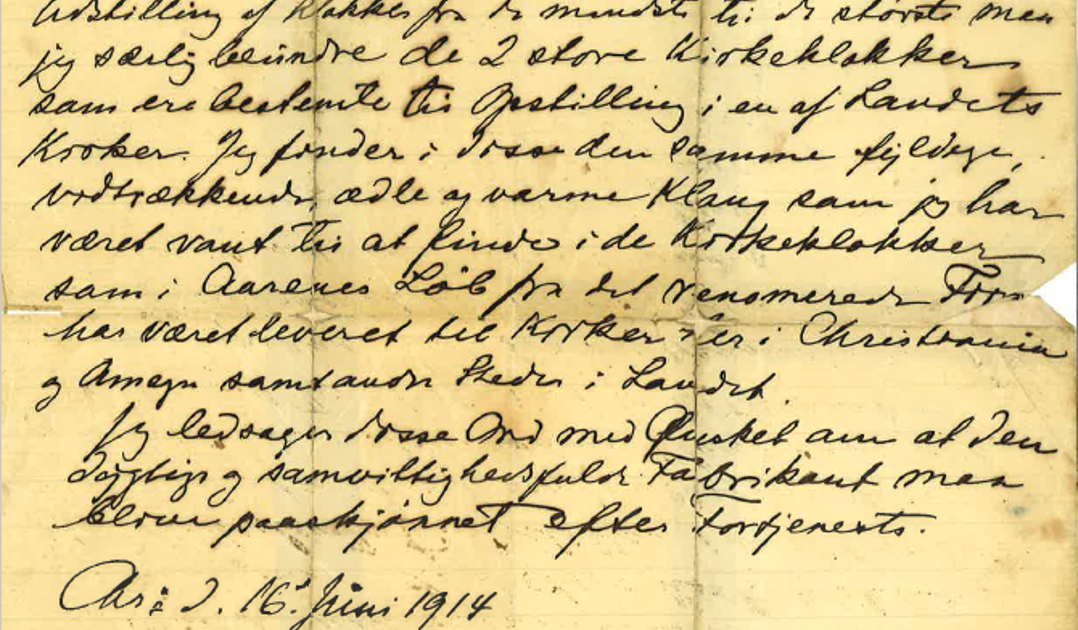 Udstilling af Klokker fra de mindste til de største maa
jeg særlig beundre de 2 store Kirkeklokker
som ere bestemte til Opstilling i en af Landets
Kirker. Jeg finder i disse den samme fyldige,
vidtrækkende, ædle og varme Klang som jeg har
været vant til at finde i de Kirkeklokker
som i Aarenes Løb fra det renomerede Firm
har været leveret til Kirker her i Christiania
og Omegn samt andre Steder i Landet.
Jeg ledsager disse Ord med Ønsket om at den
dygtige og samvittighedsfulde Fabrikant maa
blive paaskjønnet efter Fortjeneste.
Chr:a d. 16d Juni 1914